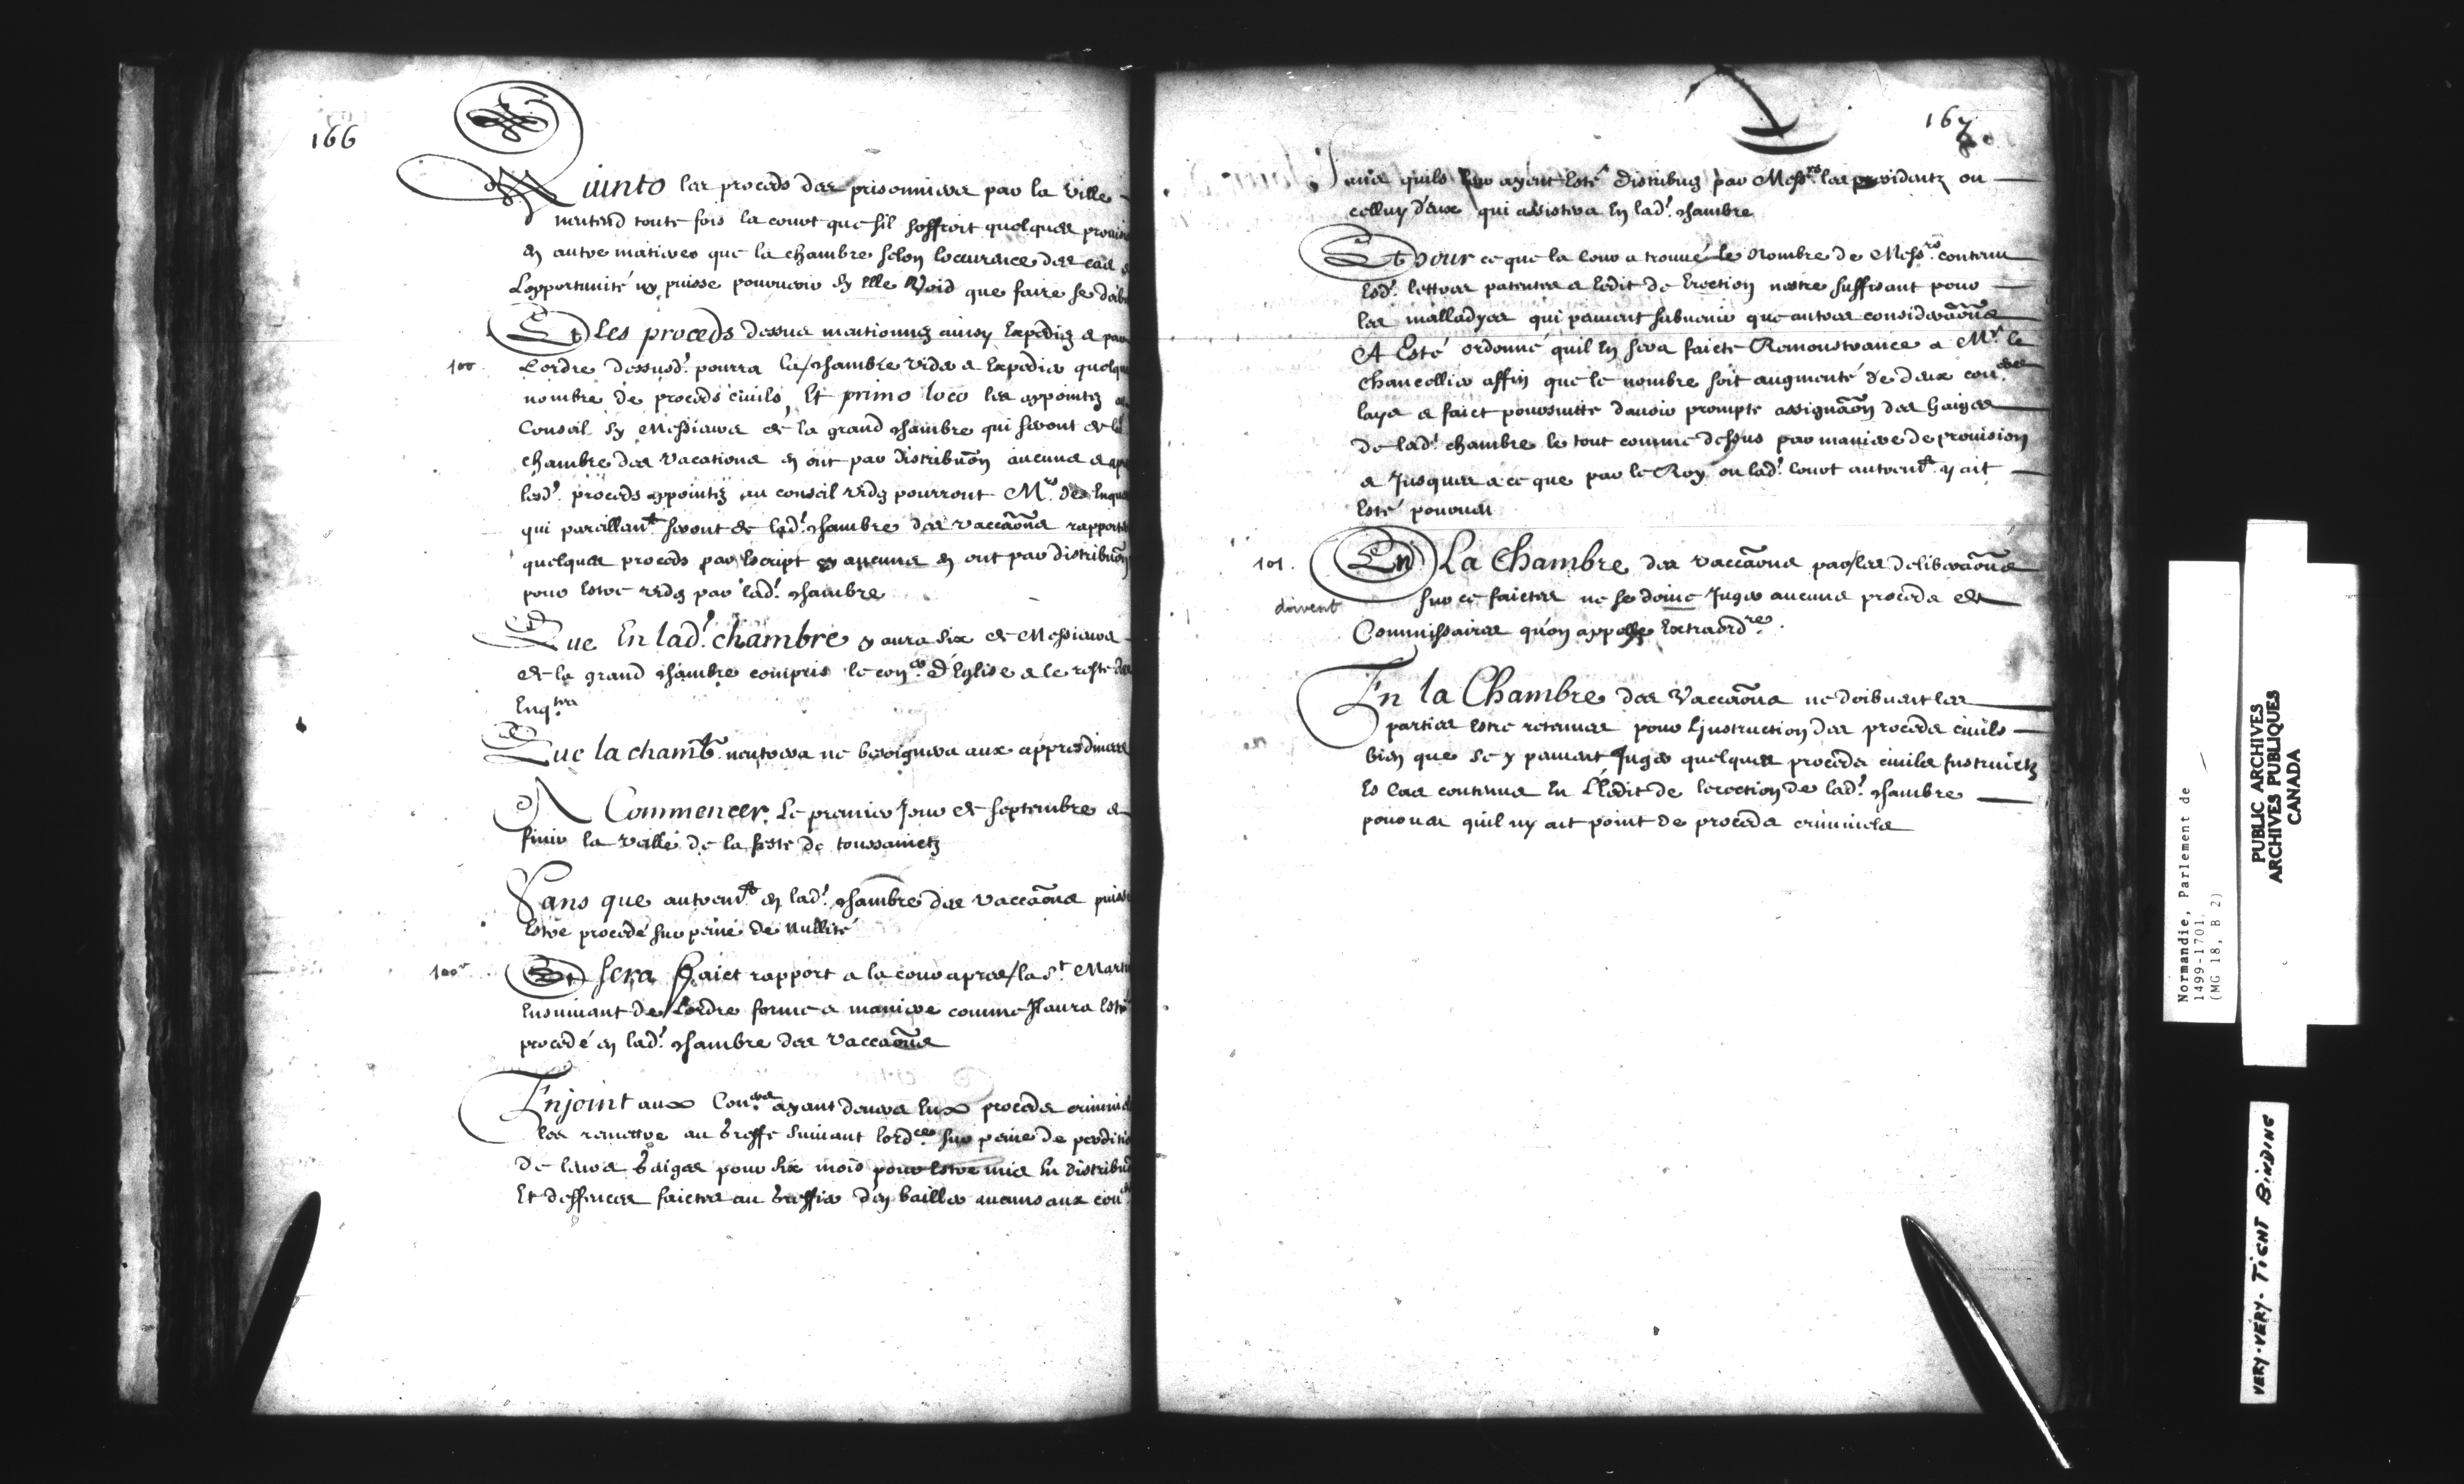 166
Quinto les proceds des prisonniers par la ville
nentend toute fois la court que sil soffroit quelques
en autre matieres que la chambre selon loccurence des cas
Lopportunité ny puisse pourvoir en elle Void que faire se
Et Les proceds dessus mentionnez ainsy Expediez e par
100
Lordre dessusd. pourra la chambre vider e Expedier
nombre de proceds civils, Et primo loco les appointez
Conseil sy Messieurs de la grand chambre qui seront de la
chambre des vacations en ont par distribuõn aucuns e
lesd. proceds appointez au conseil vidz pourront Mrs des
qui pareillemt seront de lad. chambre des vaccaõns
quelques proceds par Escript sy aucuns en ont par distribuõn
pour Estre vidz par lad. chambre
Que En lad. chambre y aura six de Messieurs
de la grand chambre compris le coner d'Eglise e le reste des
Enqtes
Que la chamb. nentrera ne besoignera aux appresdinees
A Commencer Le premier Jour de septembre e
finir la veille de la feste de toussainctz
Sans que autremt en lad. chambre des vaccaõns
Estre procedé sur peine de nullité
100v
Et sera Faict rapport a la cour apres la St
Ensuivant de Lordre forme e maniere comme Il aura Esté
procedé en lad. chambre des vaccaõns
Enjoint aux Coners ayant devers Eux proceds
les remettre au Greffe suivant lordce sur peine de
de leurs Gaiges pour six mois pour Estre mis En
Et deffences faictes au Greffier den bailler aucuns aux
167
sans quils leur ayent Esté distribuez par Messrs les presidentz ou
celluy d'eux qui assistera En lad. chambre
Et Pour ce que la Cour a trouvé Le Nombre de Messrs contenu
Esd. lettres patentes e Edit de Erection nestre suffisant pour
les malladyes qui peuvent subvenir que autres consideraõns
A Esté ordonné quil En sera faicte Remonstrance a Mr le
Chancellier affin que le nombre soit augmenté de deux coners
layz e faict poursuitte davoir prompte assignaõn des Gaiges
de lad. chambre le tout comme dessus par maniere de provision
e Jusques a ce que par le Roy ou lad. Court autremt y ait
Esté pourveu
101.
En La Chambre des vaccaõns par les deliberaõns
doivent
sur ce faictes ne se doine Juger aucuns proceds de
Commissaires qu'on appelle Extraordres.
En la Chambre des vaccaõns ne doibvent les
parties Estre retenues pour L'instruction des proceds civils
bien que se y peuvent Juger quelques proceds civils Instruictz
Es Cas contenus En L'Edit de lerection de lad. chambre
pourveu quil ny ait point de proceds criminels
Normandie, Parlement de
1499-1701
(MG 18, B 2)
PUBLIC ARCHIVES
ARCHIVES PUBLIQUES
CANADA
VERY-VERY-TIGHT BINDING